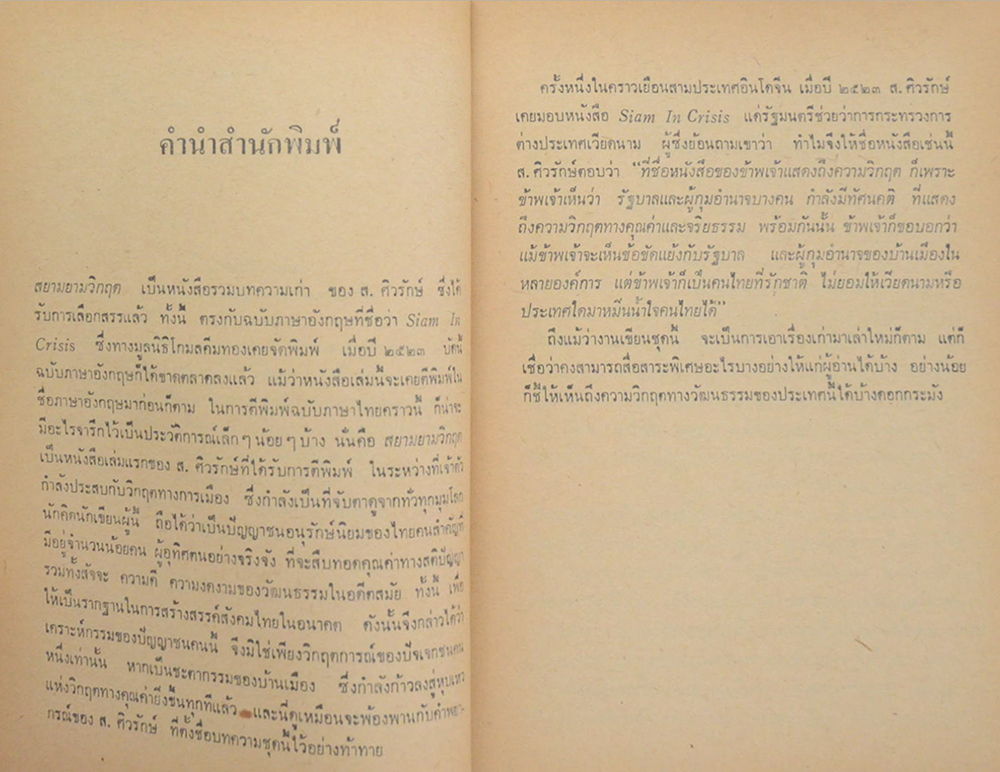 คำนำสำนักพิมพ์
สยามยามวิกฤต เป็นหนังสือรวมบทความเก่า ของ ส. ศิวรักษ์ ซึ่งได้
รับการเลือกสรรแล้ว ทั้งนี้ ตรงกับฉบับภาษาอังกฤษที่ชื่อว่า Siam In
Crisis ซึ่งทางมูลนิธิโกมลคีมทองเคยจัดพิมพ์ เมื่อปี ๒๕๒๓ บัดนี้
ฉบับภาษาอังกฤษก็ได้ขาดตลาดลงแล้ว แม้ว่าหนังสือเล่มนี้จะเคยตีพิมพ์ใน
ชื่อภาษาอังกฤษมาก่อนก็ตาม ในการตีพิมพ์ฉบับภาษาไทยคราวนี้ ก็น่าจะ
มีอะไรจารึกไว้เป็นประวัติการณ์เล็กๆ น้อยๆ บ้าง นั่นคือ สยามยามวิกฤต
เป็นหนังสือเล่มแรกของ ส. ศิวรักษ์ที่ได้รับการตีพิมพ์ ในระหว่างที่เจ้าตัว
กำลังประสบกับวิกฤตทางการเมือง ซึ่งกำลังเป็นที่จับตาดูจากทั่วทุกมุมโลก
นักคิดนักเขียนผู้นี้ ถือได้ว่าเป็นปัญญาชนอนุรักษ์นิยมของไทยคนสำคัญที่
มีอยู่จำนวนน้อยคน ผู้อุทิศตนอย่างจริงจัง ที่จะสืบทอดคุณค่าทางสติปัญญา
รวมทั้งสัจจะ ความดี ความงดงามของวัฒนธรรมในอดีตสมัย ทั้งนี้ เพื่อ
ให้เป็นรากฐานในการสร้างสรรค์สังคมไทยในอนาคต ดังนั้นจึงกล่าวได้ว่า
เคราะห์กรรมของปัญญาชนคนนี้ จึงมิใช่เพียงวิกฤตการณ์ของปัจเจกชนคน
หนึ่งเท่านั้น หากเป็นชะตากรรมของบ้านเมือง ซึ่งกำลังก้าวลงสู่หุบเหว
แห่งวิกฤตทางคุณค่ายิ่งขึ้นทุกทีแล้ว และนี่ดูเหมือนจะพ้องพานกับคำพยา-
กรณ์ของ ส. ศิวรักษ์ ที่ตั้งชื่อบทความชุดนี้ไว้อย่างท้าทาย
ครั้งหนึ่งในคราวเยือนสามประเทศอินโดจีน เมื่อปี ๒๕๒๓ ส. ศิวรักษ์
เคยมอบหนังสือ Siam In Crisis แด่รัฐมนตรีช่วยว่าการกระทรวงการ
ต่างประเทศเวียดนาม ผู้ซึ่งย้อนถามเขาว่า ทำไมจึงให้ชื่อหนังสือเช่นนี้
ส. ศิวรักษ์ตอบว่า "ที่ชื่อหนังสือของข้าพเจ้าแสดงถึงความวิกฤต ก็เพราะ
ข้าพเจ้าเห็นว่า รัฐบาลและผู้กุมอำนาจบางคน กำลังมีทัศนคติ ที่แสดง
ถึงความวิกฤตทางคุณค่าและจริยธรรม พร้อมกันนั้น ข้าพเจ้าก็ขอบอกว่า
แม้ข้าพเจ้าจะเห็นข้อขัดแย้งกับรัฐบาล และผู้กุมอำนาจของบ้านเมืองใน
หลายองค์การ แต่ข้าพเจ้าก็เป็นคนไทยที่รักชาติ ไม่ยอมให้เวียดนามหรือ
ประเทศใดมาหมิ่นน้ำใจคนไทยได้"
ถึงแม้ว่างานเขียนชุดนี้ จะเป็นการเอาเรื่องเก่ามาเล่าใหม่ก็ตาม แต่ก็
เชื่อว่าคงสามารถสื่อสาระพิเศษอะไรบางอย่างให้แก่ผู้อ่านได้บ้าง อย่างน้อย
ก็ชี้ให้เห็นถึงความวิกฤตทางวัฒนธรรมของประเทศนี้ได้บ้างดอกกระมัง